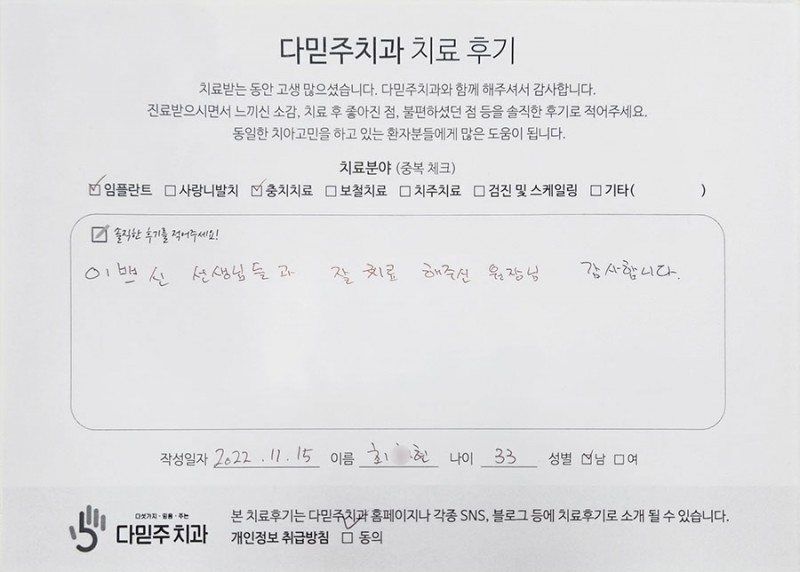 다믿주치과 치료 후기
치료받는 동안 고생 많으셨습니다. 다믿주치과와 함께 해주셔서 감사합니다.
진료받으시면서 느끼신 소감, 치료 후 좋아진 점, 불편하셨던 점 등을 솔직한 후기로 적어주세요.
동일한 치아고민을 하고 있는 환자분들에게 많은 도움이 됩니다.
치료분야 (중복 체크)
☑ 임플란트 ☐ 사랑니발치 ☑ 충치치료 ☐ 보철치료 ☐ 치주치료 ☐ 검진 및 스케일링 ☐ 기타( )
솔직한 후기를 적어주세요!
이쁘신 선생님들과 잘 치료 해주신 원장님 감사합니다.
작성일자 2022.11.15 이름 최 현 나이 33 성별 ☑남 ☐여
다섯가지·믿음·주는
다믿주치과
본 치료후기는 다믿주치과 홈페이지나 각종 SNS, 블로그 등에 치료후기로 소개 될 수 있습니다.
개인정보 취급방침 ☐ 동의